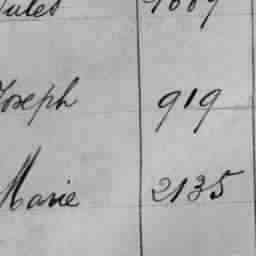 Jules
Joseph 919
Marie 2135